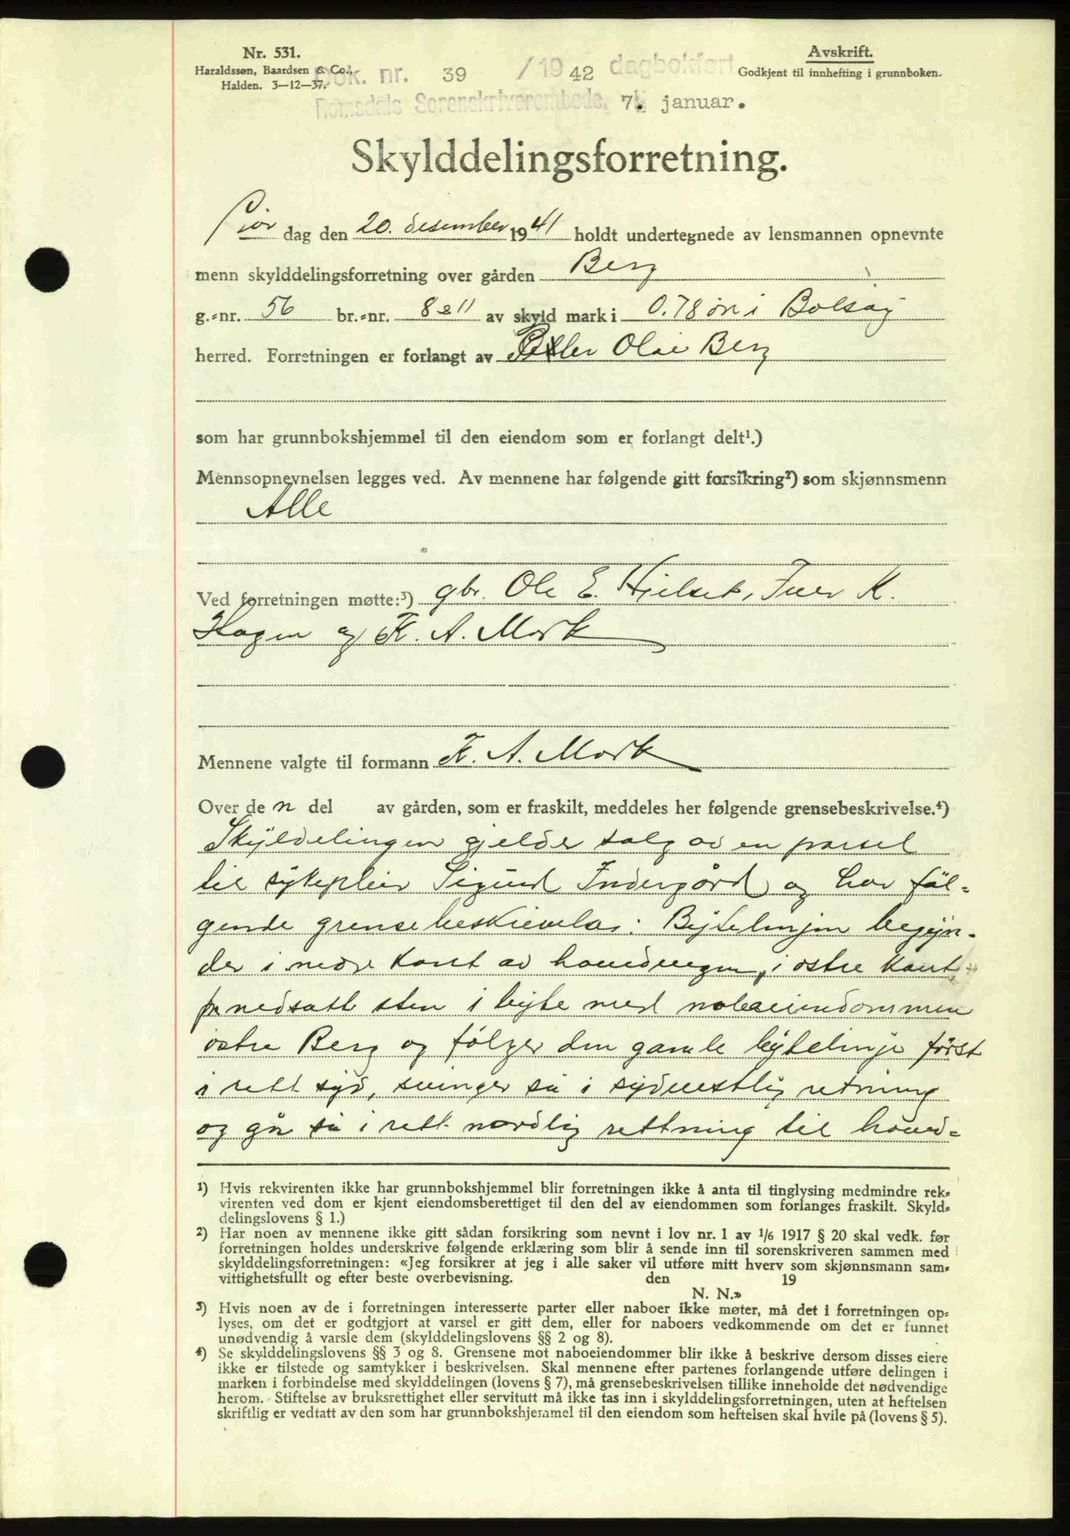 Nr. 531.
Haraldssøn, Baardsen & Co.,
Halden. 3—12—37.
Avskrift.
Godkjent til innhefting i grunnboken.
Dok. nr. 39 /19 42 dagbokført
Romsdals Sorenskriverembede, 7. januar.
Skylddelingsforretning.
dag den 20. desember 1941 holdt undertegnede av lensmannen opnevnte
menn skylddelingsforretning over gården Berg
g.-nr. 56 br.-nr. 8 e 11 av skyld mark i 0.78 øre i Bolsøy
herred. Forretningen er forlangt av Olai Berg
som har grunnbokshjemmel til den eiendom som er forlangt delt¹.)
Mennsopnevnelsen legges ved. Av mennene har følgende gitt forsikring²) som skjønnsmenn
Alle
Ved forretningen møtte:³) gbr. Ole E. Hjelset, Iver K.
Hagen og K. A. Mork
Mennene valgte til formann K. A. Mork
Over de n del av gården, som er fraskilt, meddeles her følgende grensebeskrivelse.⁴)
Skyldelingen gjelder salg av en parsel
til sykepleier Sigurd Indergård og har føl-
gende grensebeskrivelse: Bytelinjen begyn-
der i nedre kant av hovedvegen, i østre kant
på nedsatt sten i byte med naboeiendommen
østre Berg og følger den gamle bytelinje først
i rett syd, svinger så i sydvestlig retning
og går så i rett nordlig rettning til hoved-
¹) Hvis rekvirenten ikke har grunnbokshjemmel blir forretningen ikke å anta til tinglysing medmindre rek-
virenten ved dom er kjent eiendomsberettiget til den del av eiendommen som forlanges fraskilt. Skyld-
delingslovens § 1.)
²) Har noen av mennene ikke gitt sådan forsikring som nevnt i lov nr. 1 av ¹/₆ 1917 § 20 skal vedk. før
forretningen holdes underskrive følgende erklæring som blir å sende inn til sorenskriveren sammen med
skylddelingsforretningen: «Jeg forsikrer at jeg i alle saker vil utføre mitt hverv som skjønnsmann sam-
vittighetsfullt og efter beste overbevisning. den 19
N. N.»
³) Hvis noen av de i forretningen interesserte parter eller naboer ikke møter, må det i forretningen op-
lyses, om det er godtgjort at varsel er gitt dem, eller for naboers vedkommende om det er funnet
unødvendig å varsle dem (skylddelingslovens §§ 2 og 8).
⁴) Se skylddelingslovens §§ 3 og 8. Grensene mot naboeiendommer blir ikke å beskrive dersom disses eiere
ikke er tilstede og samtykker i beskrivelsen. Skal mennene efter partenes forlangende utføre delingen i
marken i forbindelse med skylddelingen (lovens § 7), må grensebeskrivelsen tillike inneholde det nødvendige
herom. Stiftelse av bruksrettighet eller servitutt må ikke tas inn i skylddelingsforretningen, uten at heftelsen
skriftlig er vedtatt av den som har grunnbokshjemmel til den eiendom som heftelsen skal hvile på (lovens § 5).